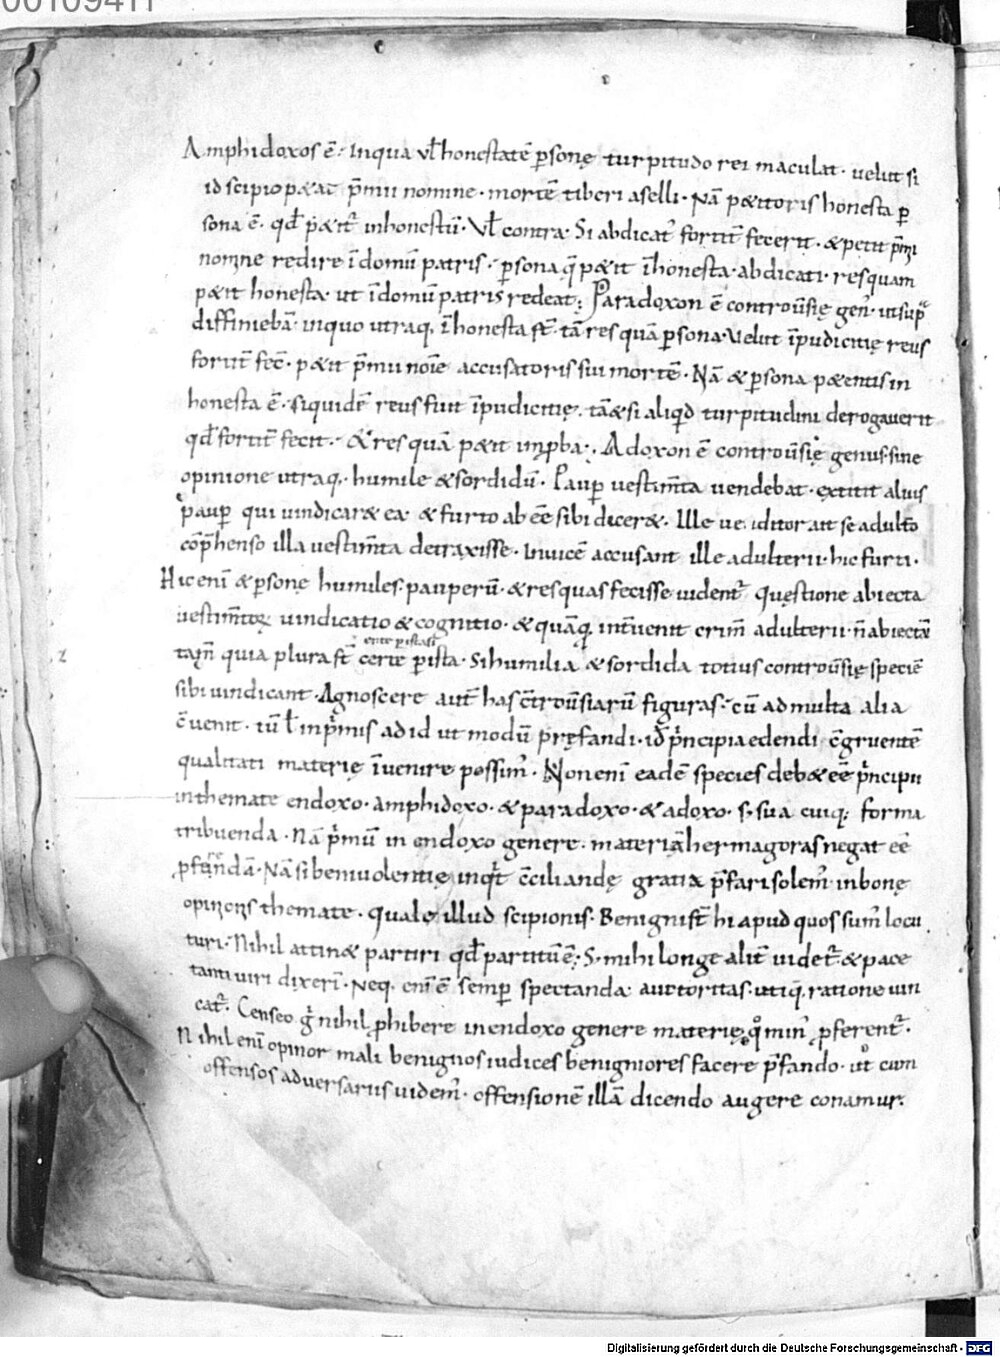 00109411
Amphidoxos ē· Inqua vł honestatē ꝑsonę turpitudo rei maculat· uelut si
id scipio petat p̄mii nomine· mortē tiberi aselli· Nā petitoris honesta ꝑ
sona ē· qđ petit̄ inhonestū· Vł contra· Si abdicat᷒ fortit̄ fecerit· & petit p̄mii
nomine redire ī domū patris· ꝑsona q̄ petit īhonesta· abdicati· res quam
petit honesta· ut ī domū patris redeat; Paradoxon ē controū̄się gen᷒ ut supͣ
diffiniebā· inquo utraq· īhonesta st̄· tā res quā ꝑsona· Velut īpudicitię reus
fortit̄ fec̄· petit p̄mii noīe accusatoris sui mortē· Nā & ꝑsona petentis in
honesta ē· siquidē reus fuit īpudicitię· tā&si aliqđ turpitudini derogauerit
qđ fortit̄ fecit· & res quā petit imꝓba· Adoxon ē controū̄się genus· sine
opinione utraq· humile & sordidū· Pauꝑ uestim̄ta uendebat· extitit alius
pauꝑ qui uindicar& ea· & furto ab eē sibi dicer&· Ille uenditor ait se adult̄o
cōp̄henso illa uestim̄ta detraxisse· Inuicē accusant ille adulterii· hic furti·
Hic enī & ꝑsonę humiles· pauperū· & res quas fecisse uident᷒ quęstione abiecta
uestim̄toꝝ uindicatio & cognitio· & quāq· int̄uenit crim̄ adulterii· n̄ abiectā
ente ꝑistasi
tam̄ quia plura st̄ certe ꝑista· Si humilia & sordida totius controū̄się speciē
sibi uindicant· Agnoscere aut̄ has c̄troū̄siarū figuras· cū ad multa alia
c̄uenit· tū ł inp̄mis ad id ut modū pręfandi· idē p̄ncipia edendi c̄gruentē
qualitati materię īuenire possim᷒· Non enī eadē species deb& eē p̄ncipii
in themate endoxo· amphidoxo· & paradoxo· & adoxo· s; sua cuiq; forma
tribuenda· Nā p̄mū in endoxo genere· materiā hermagoras negat eē
p̄fandā· Nā si beniuolentię inq̄t c̄ciliandę gratia p̄fari solem᷒ in bonę
opinionis themate· quale illud scipionis· Benigni st̄ hi apud quos sum᷒ locu
turi· Nihil attin& partiri qđ partitū ē; S; mihi longe alit̄ uidet᷒ & pace
tanti uiri dixerī· Neq· enī ē semꝑ spectanda auctoritas· utiq· ratione uin
cat᷒· Censeo g̊ nihil ꝓhibere in endoxo genere materię quo min᷒ p̄ferent᷒·
Nihil enī opinor mali benignos iudices benigniores facere p̄fando· ut cum
offensos aduersarius uidem᷒· offensionē illā dicendo augere conamur·
Digitalisierung gefördert durch die Deutsche Forschungsgemeinschaft - DFG